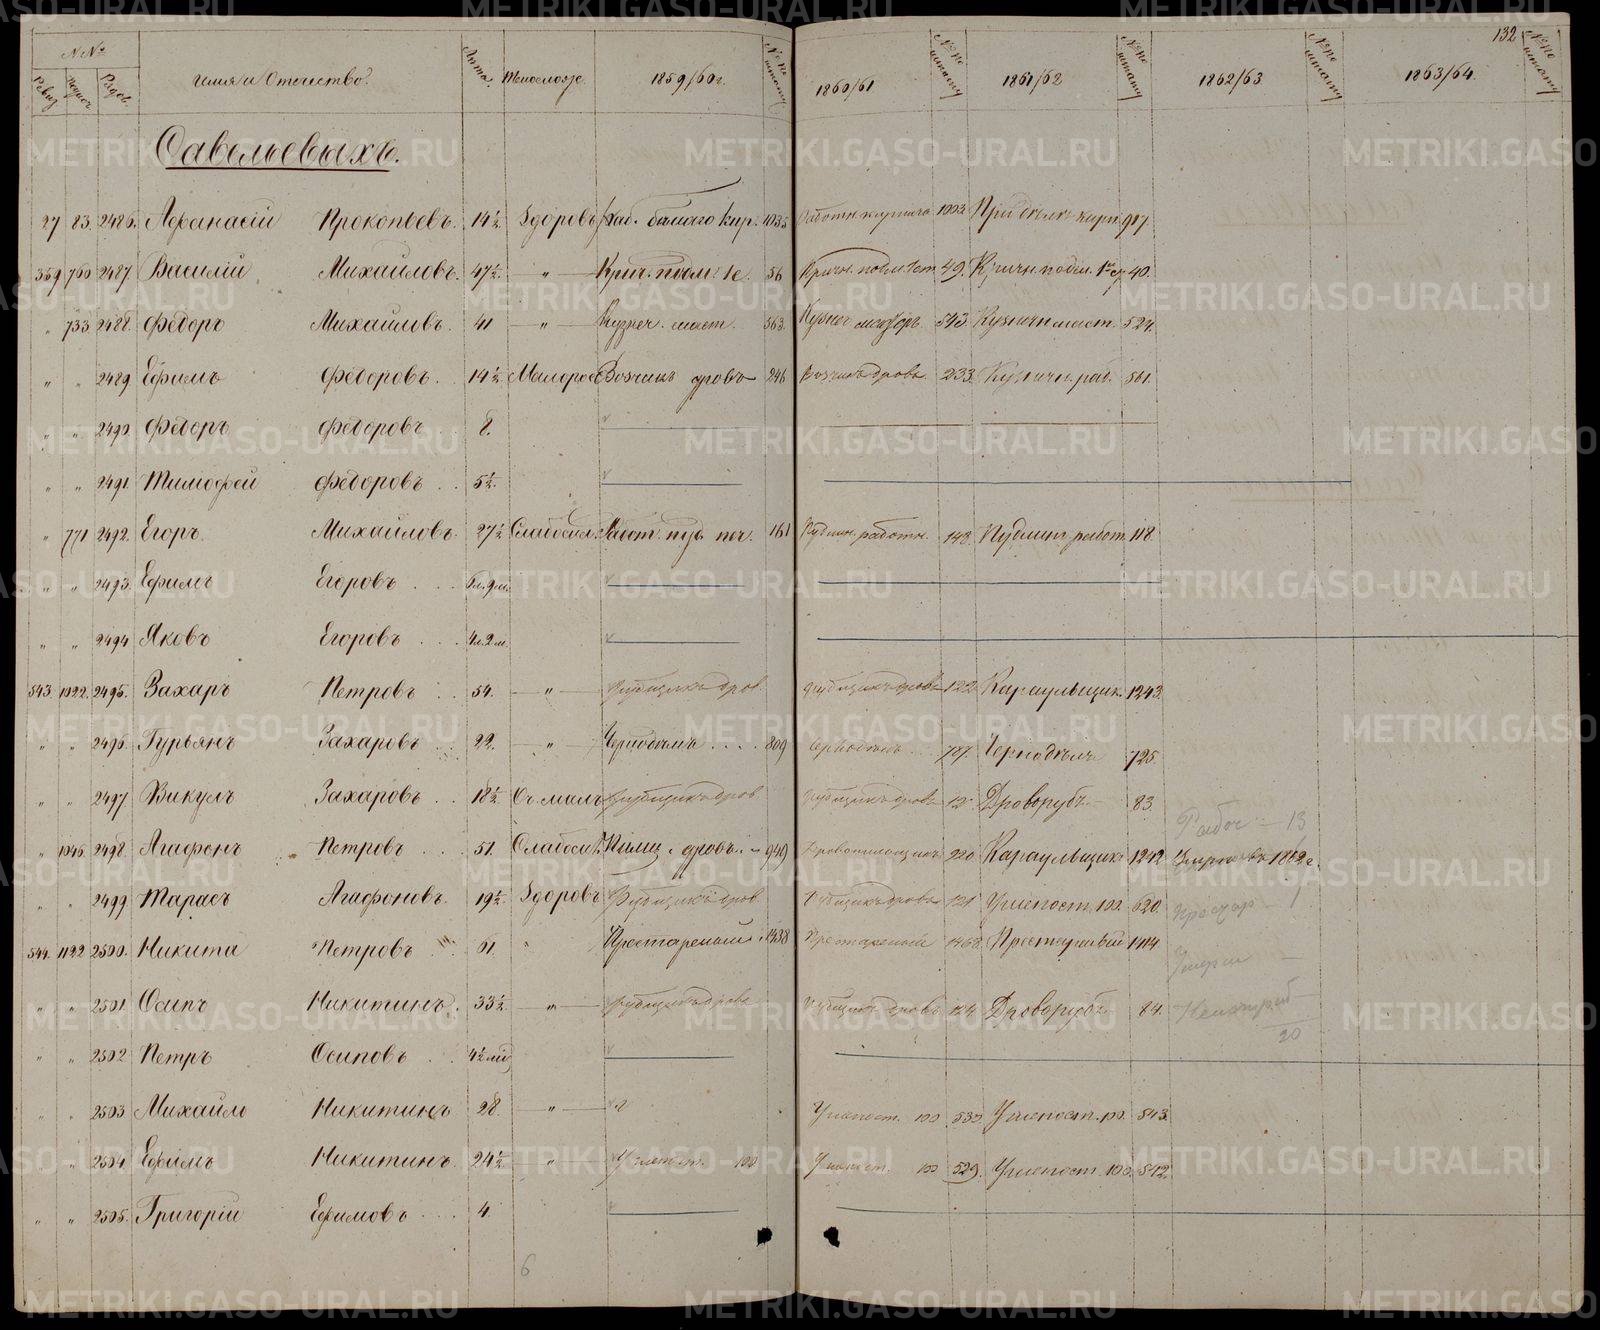 132
№№ Ревиз. Рядов. Имя и Отчество. Лета. Телослож. 1859/60 г. №№ по штату 1860/61 №№ по штату 1861/62 №№ по штату 1862/63 №№ по штату 1863/64. №№ по штату
Савельевыхъ.
27 83. 2486. Афанасій Прокопьевъ. 14½ Здоровъ Раб. бѣлаго кир. 1035 Работн. кирпича 1003. При дѣлѣ кирп. 917.
359 760 2487. Василій Михайловъ. 47½ „ Крич. подм. 1 с. 56 Кричн. подм. 1 ст. 49. Кричн. подм. 1й ст. 40.
„ 733 2488. Ѳедоръ Михайловъ. 41 „ Кузнеч. маст. 563. Кузнеч мастеръ. 543. Кузнечн маст. 524.
„ „ 2489 Ефимъ Ѳедоровъ. 14½ Малоросл Возчикъ дровъ 246 Возчикъ дровъ 233. Кузнечн. раб. 561.
„ „ 2490. Ѳедоръ Ѳедоровъ 8.
„ „ 2491. Тимофей Ѳедоровъ. 5½.
„ 771 2492. Егоръ. Михайловъ. 27½ Слабосил. Работ. пуд. печ. 161 Пудлин. работн. 148. Пудлинг. работ. 118.
„ „ 2493. Ефимъ Егоровъ 6 л. 9 м.
„ „ 2494 Яковъ Егоровъ 4 л. 2 м.
543. 1022. 2495. Захаръ Петровъ 54. „ Рубщикъ дров. Рубщикъ дровъ 122. Караульщик. 1243.
„ „ 2496. Гурьянъ Захаровъ 22. „ Чернодѣлъ 809 Чернодѣлъ 787. Чернодѣлъ 725.
„ „ 2497 Викулъ Захаровъ 18½ Съ мал. Рубщикъ дров. Рубщикъ дровъ Дроворубъ. 83.
Рабоч — 13
„ 1046. 2498. Агафонъ Петровъ 51. Слабосил. Пилщ. дровъ. 949 Дровопилощикъ 920. Караульщикъ 1242. Умеръ 1862 г.
„ „ 2499 Тарасъ Агафоновъ. 19½. Здоровъ Рубщикъ дров. Рубщикъ дровъ 121 Углепост. 100. 620.
544. 1122 2500. Никита Петровъ 61. „ Престарелый 1538 Престарелый 1468. Престарелый 1414.
Умерш —
„ „ 2501 Осипъ Никитинъ. 33½ „ Рубщикъ дровъ Рубщикъ дровъ 124 Дроворубъ 84.
20
„ „ 2502 Петръ Осиповъ 4½ мѣс
„ „ 2503 Михайло Никитинъ 28 „ Углепост. 100 530. Углепост. 100. 543.
„ „ 2504 Ефимъ Никитинъ. 24½ „ Углепост. 100 Углепост. 100 529. Углепост. 100. 542.
„ „ 2505. Григорій Ефимовъ 4
6
METRIKI.GASO-URAL.RU